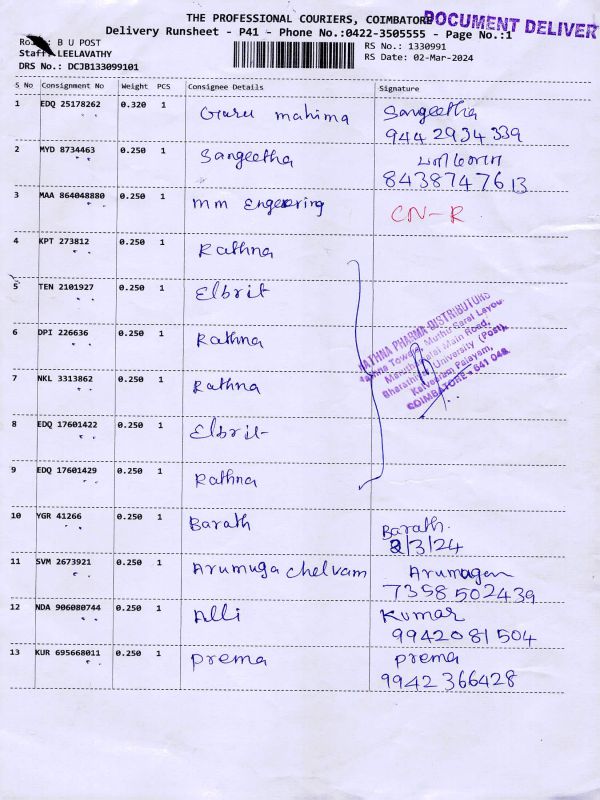 THE PROFESSIONAL COURIERS, COIMBATORE
DOCUMENT DELIVER
Delivery Runsheet - P41 - Phone No.:0422-3505555 - Page No.:1
B U POST
RS No.: 1330991
Staff: LEELAVATHY
RS Date: 02-Mar-2024
DRS No.: DCJB133099101
S No Consignment No Weight PCS Consignee Details Signature
1 EDQ 25178262 0.320 1 Guru mahima Sangeetha
9442934339
2 MYD 8734463 0.250 1 Sangeetha
8438747613
3 MAA 864048880 0.250 1 mm Engeering CN-R
4 KPT 273812 0.250 1 Rathna
5 TEN 2101927 0.250 1 Elbrit
6 DPI 226636 0.250 1 Rathna
7 NKL 3313862 0.250 1 Rathna
8 EDQ 17601422 0.250 1 Elbrit
9 EDQ 17601429 0.250 1 Rathna
RATHNA PHARMA DISTRIBUTORS
Rathna Towers, Muthu Saral Layou
Main Road,
Bharathiar University (Post),
Kalveeram Palayam,
COIMBATORE - 641 046.
10 YGR 41266 0.250 1 Barath Barath.
2/3/24
11 SVM 2673921 0.250 1 Arumuga chelvam Arumugam
7358502439
12 NDA 906080744 0.250 1 Alli Kumar
9942081504
13 KUR 695668011 0.250 1 prema prema
9942366428